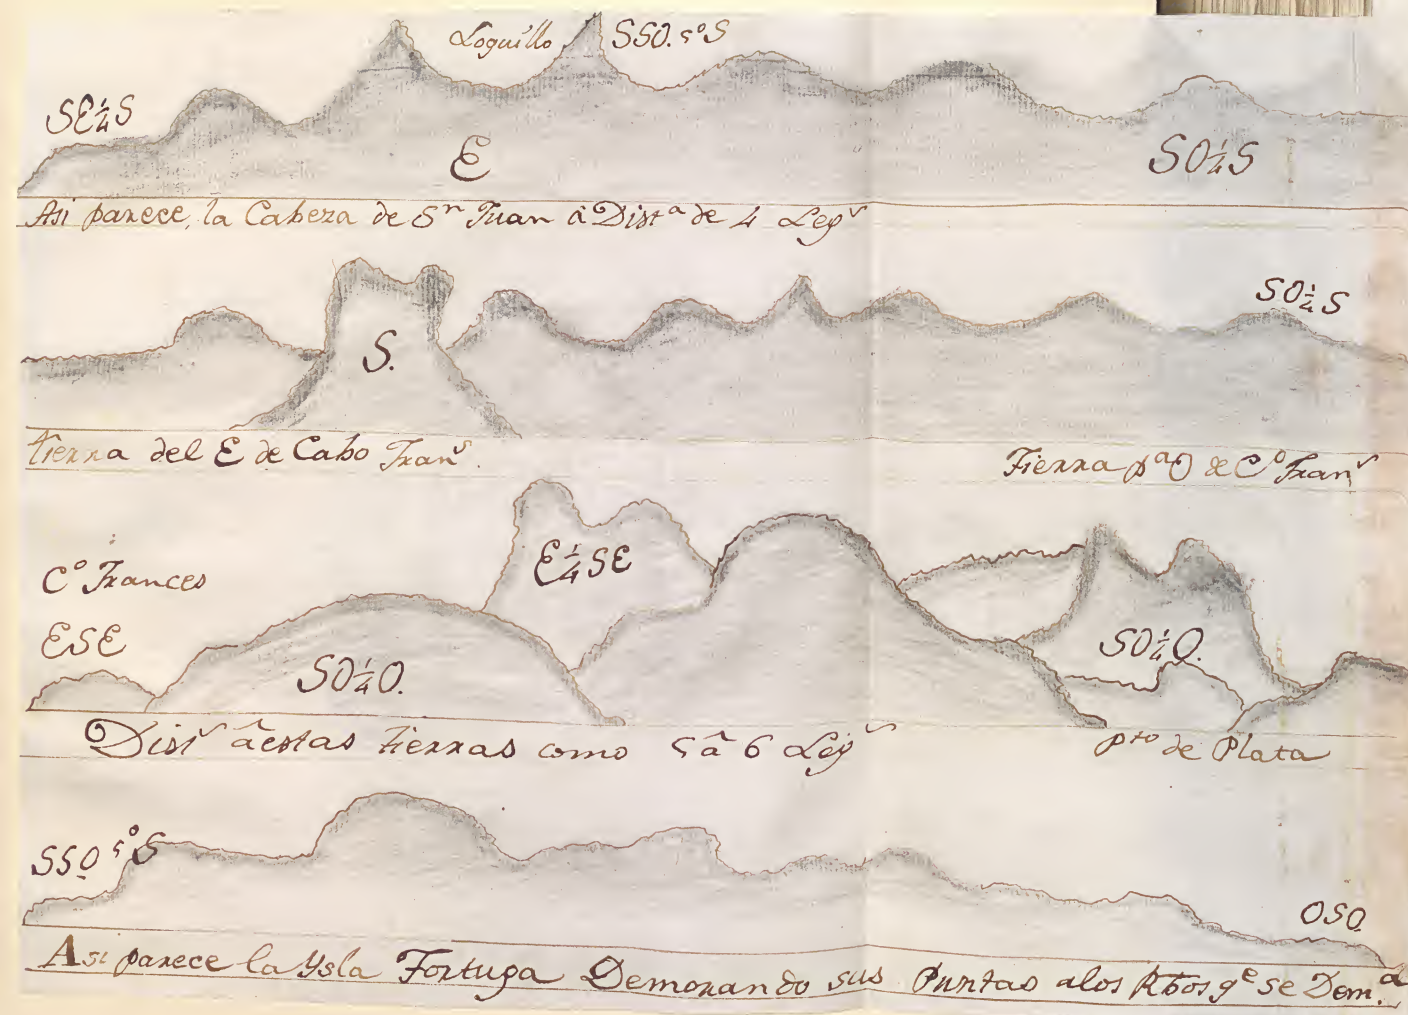 Loquillo SSO. 5º S
SE¼S
E
SO¼S
Asi parece, la Cabeza de Sⁿ Juan â Distª de 4 Legˢ
SO¼S
S.
tierra del E de Cabo Franˢ.
Tierra pª O de Cº Franˢ
E¼SE
Cº Frances
ESE
SO¼O.
SO¼O.
Distˢ âestas tierras como 5 â 6 Legˢ
Pᵗᵒ de Plata
SSO 5º S
OSO
Asi parece la Ysla Tortuga Demorando sus Puntas alos Rbos qᵉ se Dem.ª